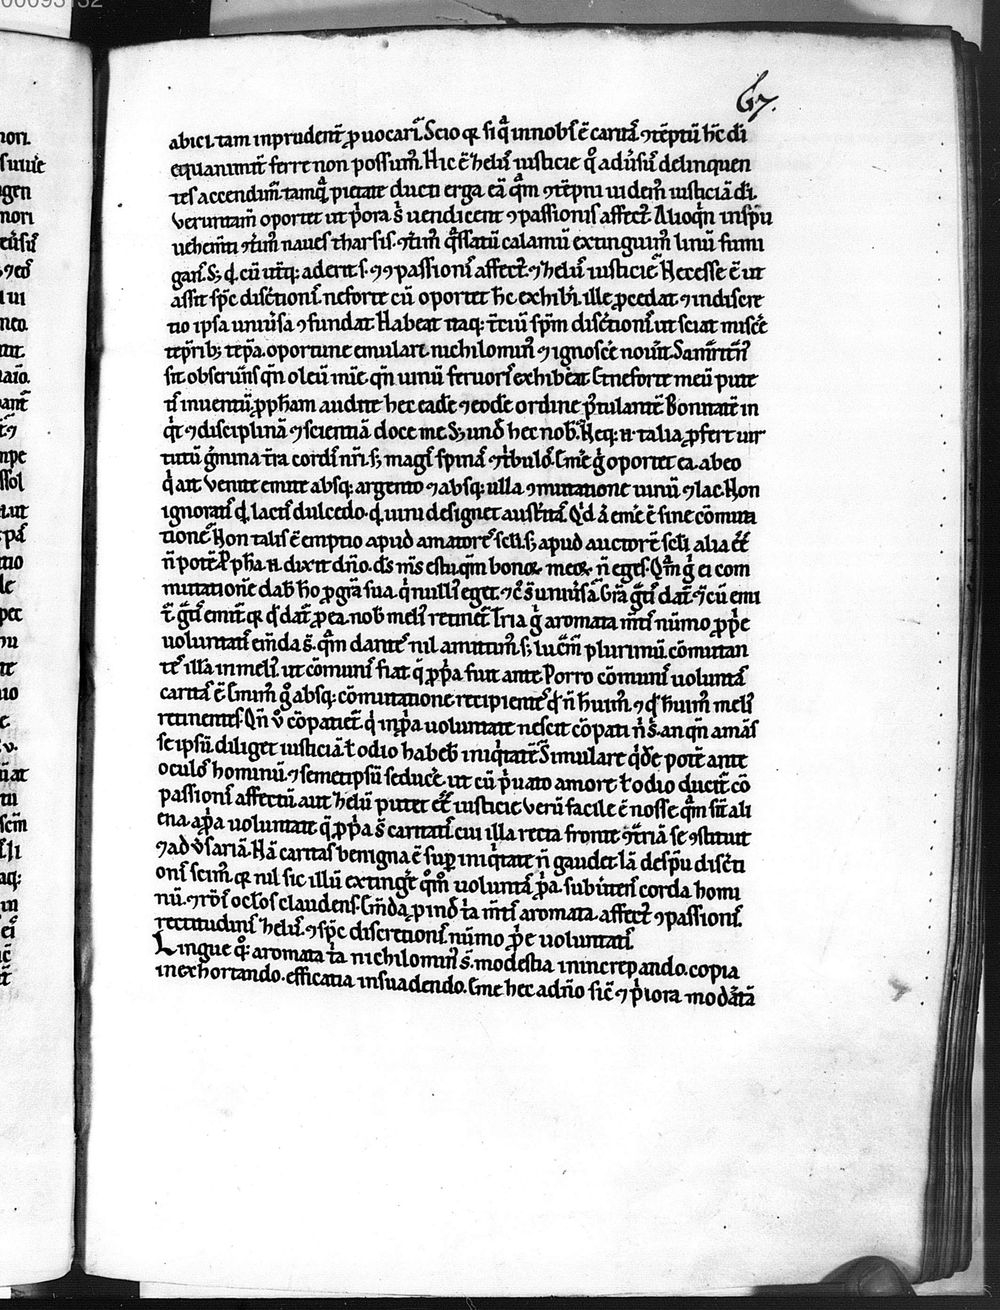 67.
abici. tam inprudent̃ ꝓuocari. Scio qꝫ si q̃ in nob̃ ẽ carita᷒ ⁊tẽptũ hc̃ dñi
equanimit̃ ferre non possum᷒. Hic ẽ ʒhelu᷒ iusticie q̊ adũsu᷒ delinquen
tes accendim᷒ tamq̃ pietate ducti erga eã q̃m ⁊tẽpni uidem᷒ iusticiã dĩ.
Veruntam̃ oportet ut p̃ora s᷑ uendicent ꝯpassionis affect᷒. Alioqn̄ in spũ
uehem̃ti ꝯt̃im᷒ naues tharsis. ꝯt̃im᷒ q̃ssatũ calamũ extinguim᷒ linũ fumi
gans. Sꝫ q̃ cũ utq̃ꝫ aderit s. ꝯpassion᷒ affect᷒ ⁊ ʒhelu᷒ iusticie. Necesse ẽ ut
assit sp̃c discretion᷒ ne forte cũ oportet hc̃ exhibri. ille ꝓcedat ⁊ indiscre
tio ipsa uniũsa ꝯfundat. Habeat itaqꝫ t̃ciũ sp̃m discretion᷒ ut sciat miscẽ
tẽpribꝫ tẽpa. oportune emulari. nichilomin᷒ ⁊ ignoscẽ nou̓it. Samaritan᷒
sit obseruans qn̄ oleũ mĩe qn̄ uinũ feruoris exhibeat. Et ne forte meũ pute
t᷒ inuentũ ꝓpham audite hec eadẽ ⁊ eodẽ ordine p̃tulantẽ. Bonitatẽ in
q̃t ⁊ disciplinã ⁊ scientiã doce me. Sꝫ und̃ hec nob̃. Neqꝫ n̄ talia ꝓfert uir
tutũ g̃mina t̃ra cordis nr̃i. sꝫ magis spina᷒ ⁊ t̃bulos. Emĩe g̊ oportet ea. ab eo
q̃ ait Venite emite absqꝫ argento ⁊ absqꝫ ulla ꝯmutatione uinũ ⁊ lac. Non
ignorat᷒ q̃ lactis dulcedo. q̃ uini designet austẽitas. Qd̃ ã emĩe ẽ sine cõmuta
tione. Non talis ẽ emptio apud amatorẽ scl̃i. sꝫ apud auctorẽ scl̃i alia eẽ
n̄ potẽ. Ꝓph̃a n̄ dixit dño. ds̃ ms̃ es tu. qm̄ bonoꝝ meoꝝ n̄ eges. Q̃m g̊ ei com
mutationẽ dab̃ hõ ꝓ gr̃a sua. q̃ nulli᷒ eget ⁊ cꝰ s̃ uniũsa. Gr̃a gr̃is dat᷒ ⁊ cũ emi
t᷒ gr̃is emit᷒ qꝫ q̃d dat᷒ ꝓ ea. nob̃ meli᷒ retinet᷒. Tria g̊ aromata m̃tis nũmo ꝓp̃e
uoluntatis em̃da s᷑. q̃m dantes nil amittim᷒. sꝫ lucrem᷒ plurimũ cõmutan
tes illã in meli᷒. ut cõmunis fiat q̃ ꝓp̃a fuit ante. Porro cõmunis uolunta᷒
carita᷒ ẽ. Emim᷒ g̊ absqꝫ cõmutatione recipientes q̃d n̄ h̃uim᷒ ⁊ q̃d h̃uim᷒ meli᷒
retinentes. Qn̄ v̊ cõpatiet᷒. q̃ in ꝓp̃a uoluntate nescit cõpati n̄ s᷑. an qn̄ amãs
se ipsũ diliget iusticiã ł odio habeb̃ iniq̃tatẽ. Simulare q̃dẽ potẽ ante
oculos hominũ ⁊ semetipsũ seducẽ. ut cũ p̃uato amore ł odio ducit᷒ cõ
passionis affectũ aut ʒhelũ putet eẽ iusticie. Verũ facile ẽ nosse q̃m sint ali
ena a ꝓp̃a uoluntate q̃ ꝓp̃a s᷑ caritatis. cui illa recta fronte ꝯt̃ria se ꝯstituit
⁊ adv̓sariã. Nã caritas benigna ẽ suꝑ iniq̃tate n̄ gaudet. Iã de sp̃u discr̃ti
onis scim᷒ qꝫ nil sic illũ exting̃t q̃m uolunta᷒ ꝓp̃a. subũtens corda homi
nũ. ⁊ rõis oclos claudens. Em̃da ꝑind̃ t̃a m̃tis aromata. affect᷒ ꝯpassionis.
rectitudinis ʒhelu᷒. ⁊ sp̃c discretionis nũmo ꝓp̃e uoluntatis.
Lingue qꝫ aromata t̃ia nichilomin᷒ s᷑. modestia in increpando. copia
in exhortando. efficatia in suadendo. Eme hec a dño sic̃ ⁊ p̃iora mod̃ata᷒